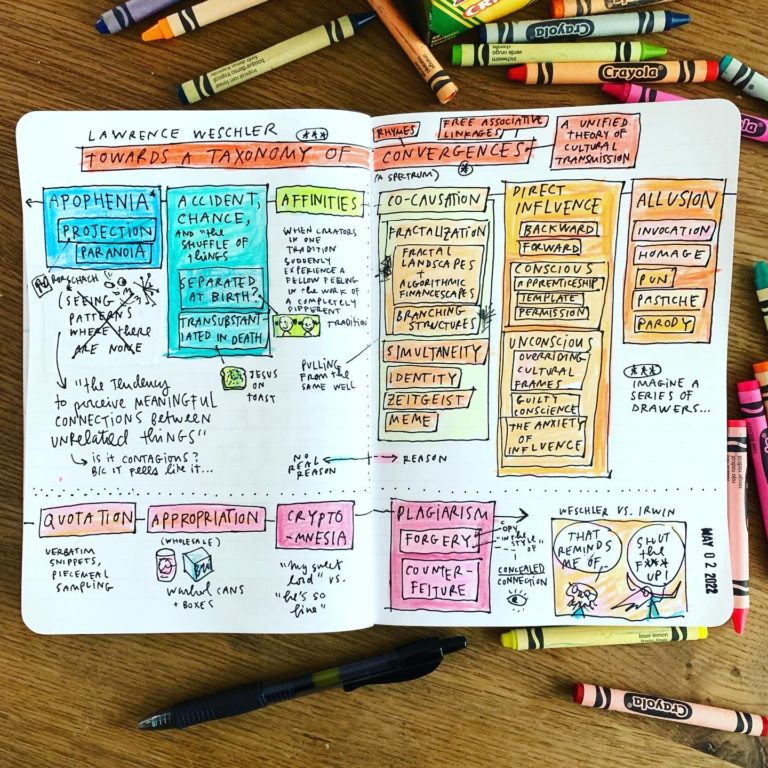 CRAYOLA
Crayola
LAWRENCE WESCHLER
TOWARDS A TAXONOMY OF CONVERGENCES
RHYMES
FREE ASSOCIATIVE
LINKAGES
A UNIFIED
THEORY OF
CULTURAL
TRANSMISSION
(A SPECTRUM)
APOPHENIA
PROJECTION
PARANOIA
RORSCHACH
(SEEING
PATTERNS
WHERE there
ARE NONE
"the TENDENCY
to perceive MEANINGFUL
CONNECTIONS BETWEEN
UNRELATED THINGS"
IS it CONTAGIOUS?
B/C IT FEELS LIKE IT...
ACCIDENT,
CHANCE,
AND "the
SHUFFLE OF
THINGS
SEPARATED
AT BIRTH?
TRANSUBSTAN
TIATED IN DEATH
JESUS
ON
TOAST
AFFINITIES
WHEN CREATORS
IN ONE
TRADITION
SUDDENLY
EXPERIENCE A
FELLOW FEELING
IN the WORK OF
A COMPLETELY
DIFFERENT
TRADITION
PULLING
FROM the
SAME WELL
NO
REAL
REASON
REASON
CO-CAUSATION
FRACTALIZATION
FRACTAL
LANDSCAPES
+
ALGORITHMIC
FINANCESCAPES
BRANCHING
STRUCTURES
SIMULTANEITY
IDENTITY
ZEITGEIST
MEME
DIRECT
INFLUENCE
BACKWARD
FORWARD
CONSCIOUS
APPRENTICESHIP
TEMPLATE
PERMISSION
UNCONSCIOUS
OVERRIDING
CULTURAL
FRAMES
GUILTY
CONSCIENCE
THE ANXIETY
OF
INFLUENCE
ALLUSION
INVOCATION
HOMAGE
PUN
PASTICHE
PARODY
IMAGINE A
SERIES OF
DRAWERS...
QUOTATION
VERBATIM
SNIPPETS,
PIECEMEAL
SAMPLING
APPROPRIATION
(WHOLESALE)
WARHOL CANS
+ BOXES
CRYPTO
-MNESIA
"MY SWEET
LORD" VS.
"he'S SO
FINE"
PLAGIARISM
FORGERY
COUNTER-
FEITURE
COPY
IN the
STYLE
OF
CONCEALED
CONNECTION
WESCHLER VS. IRWIN
THAT
REMINDS
ME OF...
SHUT
the
F***
UP!
MAY 02 2022
Crayola
laser lemon
Crayola